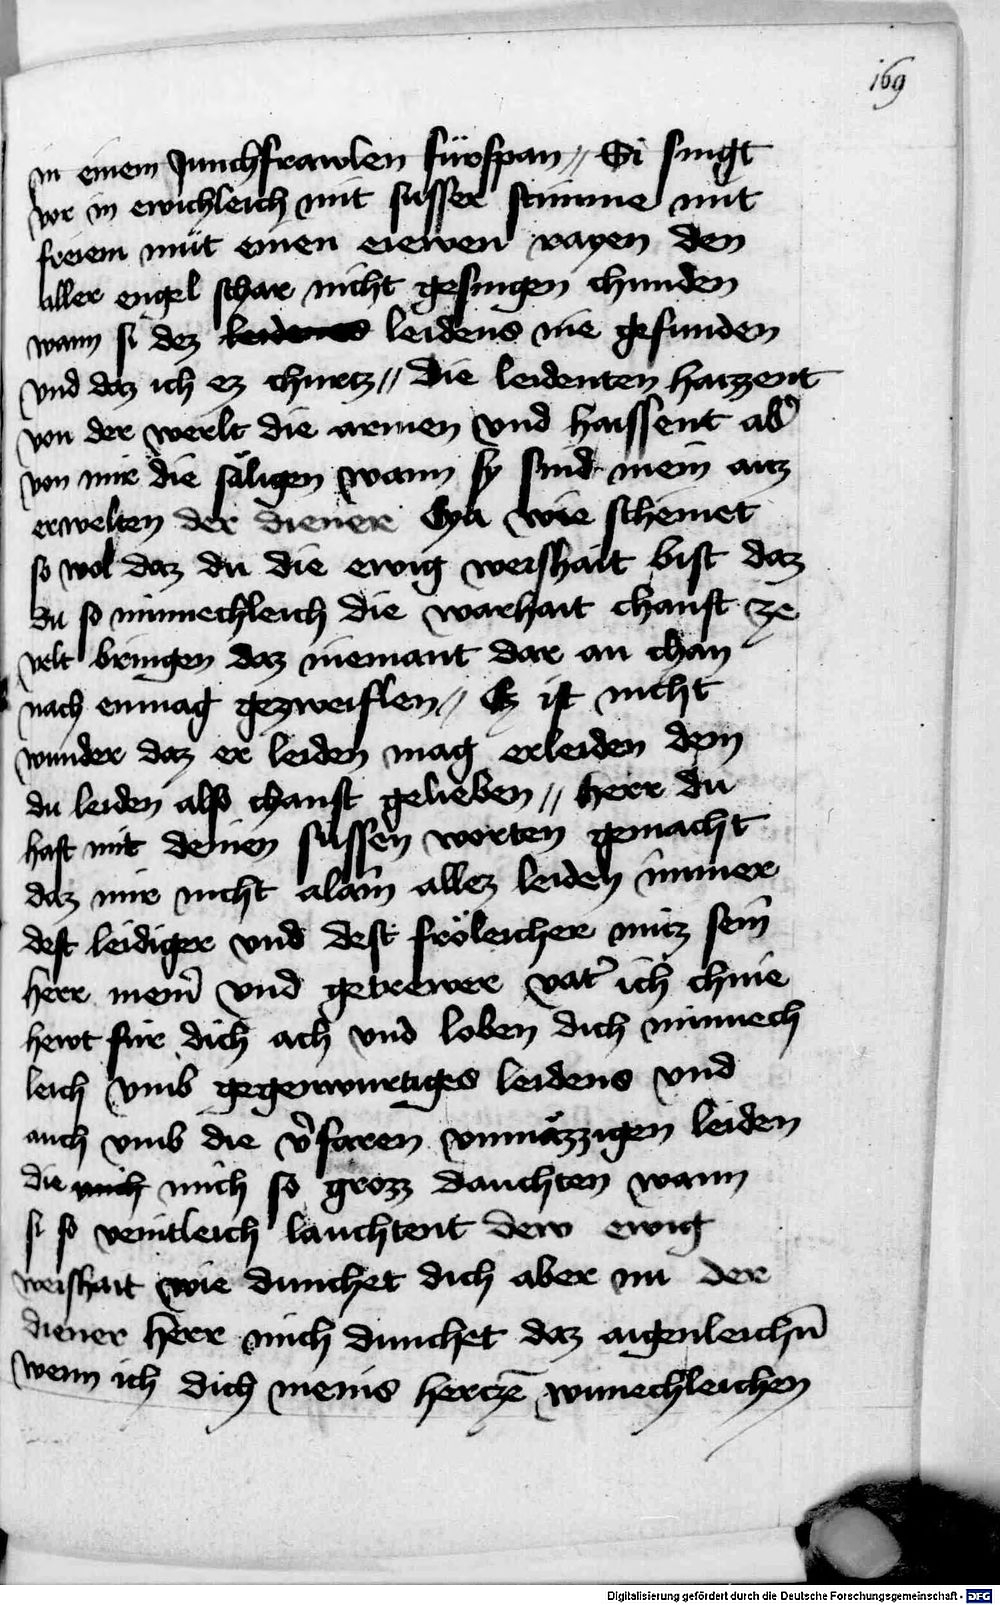 169
in einem Junchfrawlen fürspan // Si singt
vor in ewichleich mit susser stimme mit
freiem müt einen newen rayen den
aller engel schar nicht gesingen chunden
wann si dez leidens nie gefunden
vnd daz ich ez churtz // Die leidenten hayzzent
von der werlt die armen vnd haissent ab'
von mir die säligen wann sy sind mein auz
erwelten der diener Eya wie scheinet
so wol daz du die ewig weishait bist daz
du so minnechleich die warhait chanst ze
velt bringen daz niemant dar an chan
nach enmag gezweiflen // Ez ist nicht
wunder daz er leiden mag erleiden dem
du leiden also chanst gelieben // herr du
hast mit deinen süssen worten gemacht
daz mir nicht alain allez leiden immer
dest leidiger vnd dest fröleicher müz sein
herr mein' vnd getrewer vat' ich chnie
hewt für dich ach vnd loben dich minnech
leich vmb gegenwurtiges leidens vnd
auch vmb die v'faren vnmäzzigen leiden
die mich mich so grozz dauchten wann
si so veintleich lauchtent dew ewig
weishait wie dunchet dich aber nu der
diener herr mich dunchet daz aigenleichn̄
wenn ich dich meins herczē wunechleichen
Digitalisierung gefördert durch die Deutsche Forschungsgemeinschaft - DFG